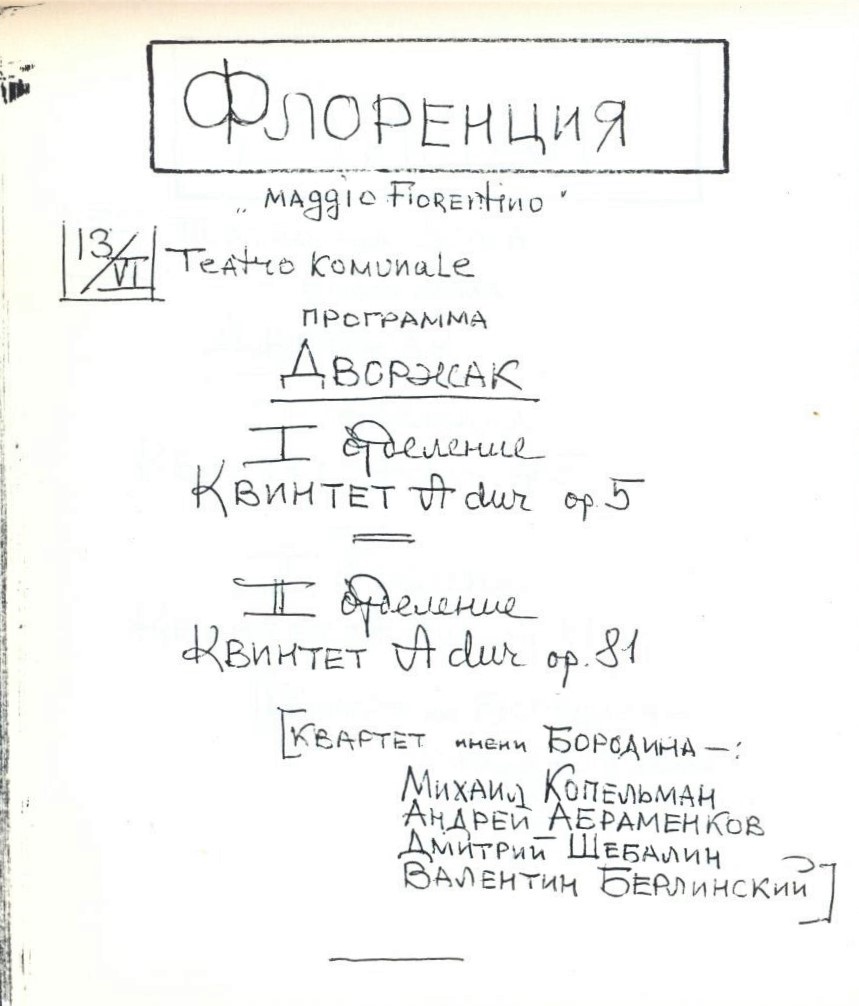 ФЛОРЕНЦИЯ
„Maggio Fiorentino"
13/VI Teatro Komunale
ПРОГРАММА
ДВОРЖАК
I отделение
КВИНТЕТ A dur op. 5
II отделение
КВИНТЕТ A dur op. 81
[КВАРТЕТ имени БОРОДИНА —:
МИХАИЛ КОПЕЛЬМАН
АНДРЕЙ АБРАМЕНКОВ
ДМИТРИЙ ШЕБАЛИН
ВАЛЕНТИН БЕРЛИНСКИЙ]